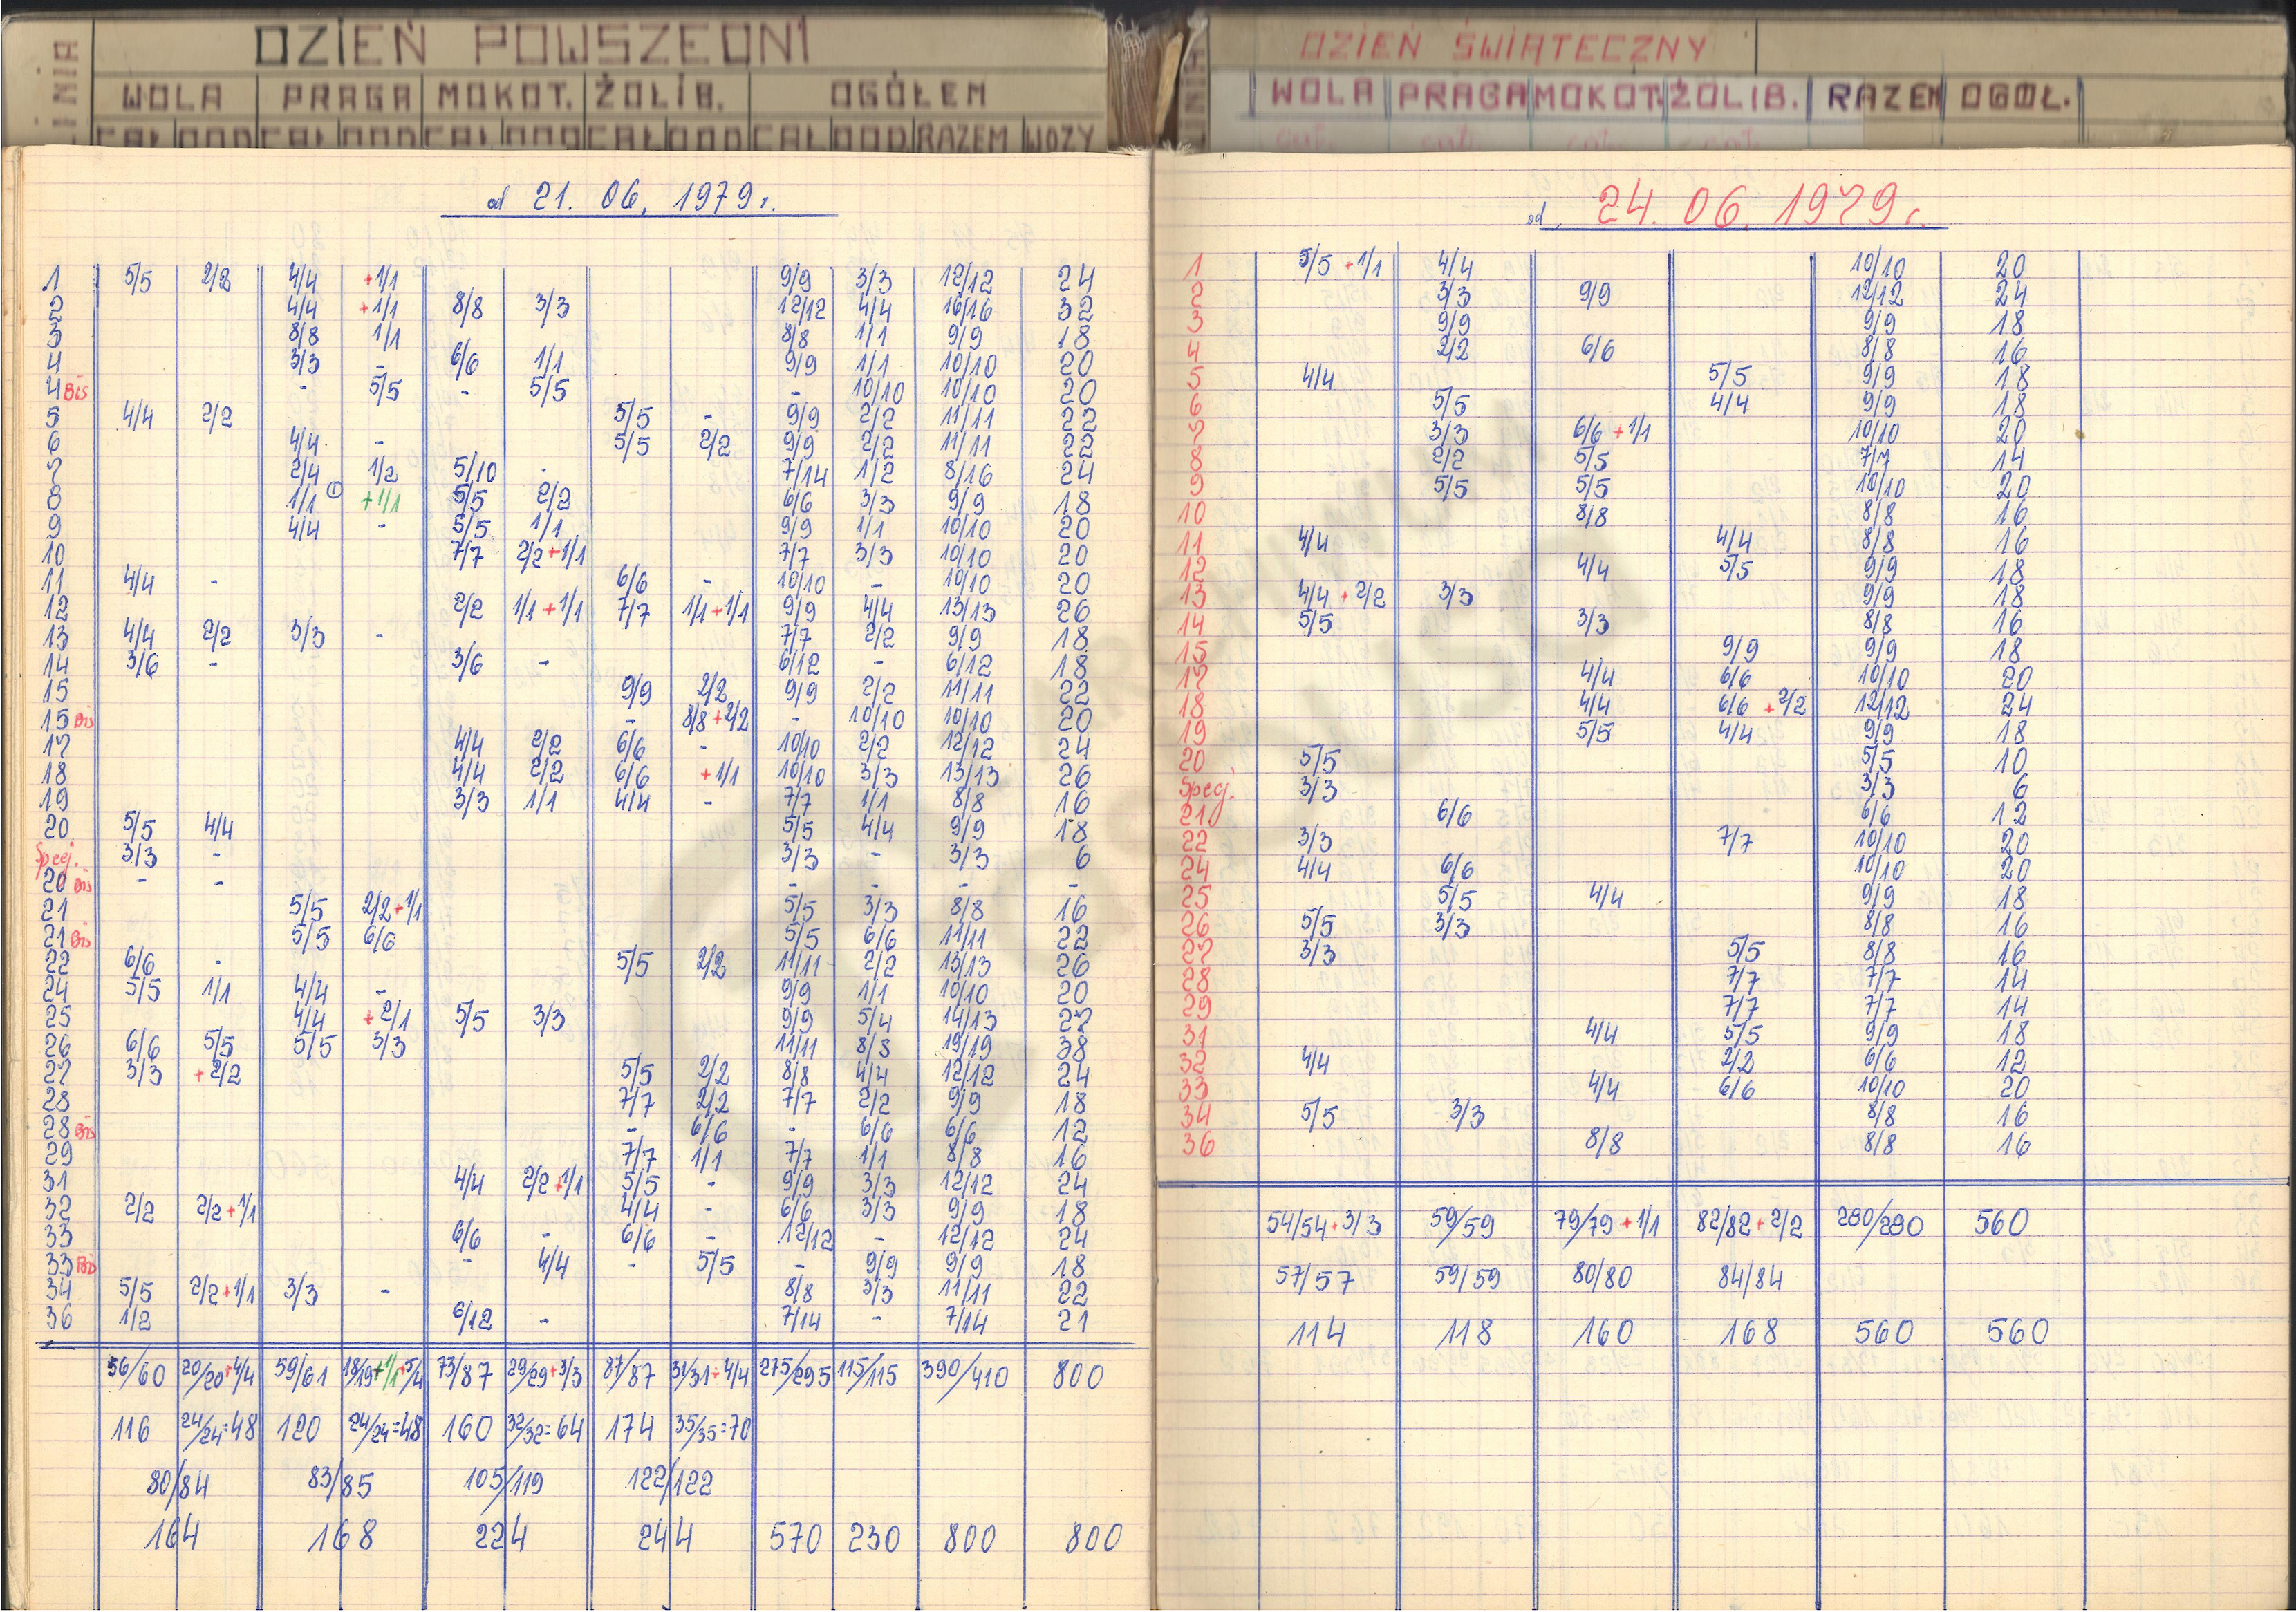 DZIEŃ POWSZEDNI
WOLA PRAGA MOKOT. ŻOLIB. OGÓŁEM
CAŁ DOD CAŁ DOD CAŁ DOD CAŁ DOD CAŁ DOD RAZEM WOZY
od 21. 06. 1979 r.
1 5/5 2/2 4/4 +1/1 9/9 3/3 12/12 24
2 4/4 +1/1 8/8 3/3 12/12 4/4 16/16 32
3 8/8 1/1 8/8 1/1 9/9 18
4 3/3 - 6/6 1/1 9/9 1/1 10/10 20
4 Bis - 5/5 - 5/5 - 10/10 10/10 20
5 4/4 2/2 5/5 - 9/9 2/2 11/11 22
6 4/4 - 5/5 2/2 9/9 2/2 11/11 22
7 2/4 1/2 5/10 . 7/14 1/2 8/16 24
8 1/1 +1/1 5/5 2/2 6/6 3/3 9/9 18
9 4/4 - 5/5 1/1 9/9 1/1 10/10 20
10 7/7 2/2+1/1 7/7 3/3 10/10 20
11 4/4 - 6/6 - 10/10 - 10/10 20
12 2/2 1/1+1/1 7/7 1/1+1/1 9/9 4/4 13/13 26
13 4/4 2/2 3/3 - 7/7 2/2 9/9 18
14 3/6 - 3/6 - 6/12 - 6/12 18
15 9/9 2/2 9/9 2/2 11/11 22
15 Bis - 8/8+2/2 - 10/10 10/10 20
17 4/4 2/2 6/6 - 10/10 2/2 12/12 24
18 4/4 2/2 6/6 +1/1 10/10 3/3 13/13 26
19 3/3 1/1 4/4 - 7/7 1/1 8/8 16
20 5/5 4/4 5/5 4/4 9/9 18
Specj. 3/3 - 3/3 - 3/3 6
20 Bis - - - - - -
21 5/5 2/2+1/1 5/5 3/3 8/8 16
21 Bis 5/5 6/6 5/5 6/6 11/11 22
22 6/6 . 5/5 2/2 11/11 2/2 13/13 26
24 5/5 1/1 4/4 - 9/9 1/1 10/10 20
25 4/4 +2/1 5/5 3/3 9/9 5/4 14/13 27
26 6/6 5/5 5/5 3/3 11/11 8/8 19/19 38
27 3/3 +2/2 5/5 2/2 8/8 4/4 12/12 24
28 7/7 2/2 7/7 2/2 9/9 18
28 Bis - 6/6 - 6/6 6/6 12
29 7/7 1/1 7/7 1/1 8/8 16
31 4/4 2/2+1/1 5/5 - 9/9 3/3 12/12 24
32 2/2 2/2+1/1 4/4 - 6/6 3/3 9/9 18
33 6/6 - 6/6 - 12/12 - 12/12 24
33 Bis - 4/4 - 5/5 - 9/9 9/9 18
34 5/5 2/2+1/1 3/3 - 8/8 3/3 11/11 22
36 1/2 6/12 - 7/14 - 7/14 21
56/60 20/20+4/4 59/61 18/19+1/1+5/4 73/87 29/29+3/3 87/87 31/31+4/4 275/295 115/115 390/410 800
116 24/24=48 120 24/24=48 160 32/32=64 174 35/35=70
80/84 83/85 105/119 122/122
164 168 224 244 570 230 800 800
DZIEŃ ŚWIĄTECZNY
WOLA PRAGA MOKOT. ŻOLIB. RAZEM OGÓŁ.
od 24. 06. 1979 r.
1 5/5 +1/1 4/4 10/10 20
2 3/3 9/9 12/12 24
3 9/9 9/9 18
4 2/2 6/6 8/8 16
5 4/4 5/5 9/9 18
6 5/5 4/4 9/9 18
7 3/3 6/6 +1/1 10/10 20
8 2/2 5/5 7/7 14
9 5/5 5/5 10/10 20
10 8/8 8/8 16
11 4/4 4/4 8/8 16
12 4/4 5/5 9/9 18
13 4/4 + 2/2 3/3 9/9 18
14 5/5 3/3 8/8 16
15 9/9 9/9 18
17 4/4 6/6 10/10 20
18 4/4 6/6 +2/2 12/12 24
19 5/5 4/4 9/9 18
20 5/5 5/5 10
Specj. 3/3 3/3 6
21 6/6 6/6 12
22 3/3 7/7 10/10 20
24 4/4 6/6 10/10 20
25 5/5 4/4 9/9 18
26 5/5 3/3 8/8 16
27 3/3 5/5 8/8 16
28 7/7 7/7 14
29 7/7 7/7 14
31 4/4 5/5 9/9 18
32 4/4 2/2 6/6 12
33 4/4 6/6 10/10 20
34 5/5 3/3 8/8 16
36 8/8 8/8 16
54/54+3/3 59/59 79/79+1/1 82/82+2/2 280/280 560
57/57 59/59 80/80 84/84
114 118 160 168 560 560